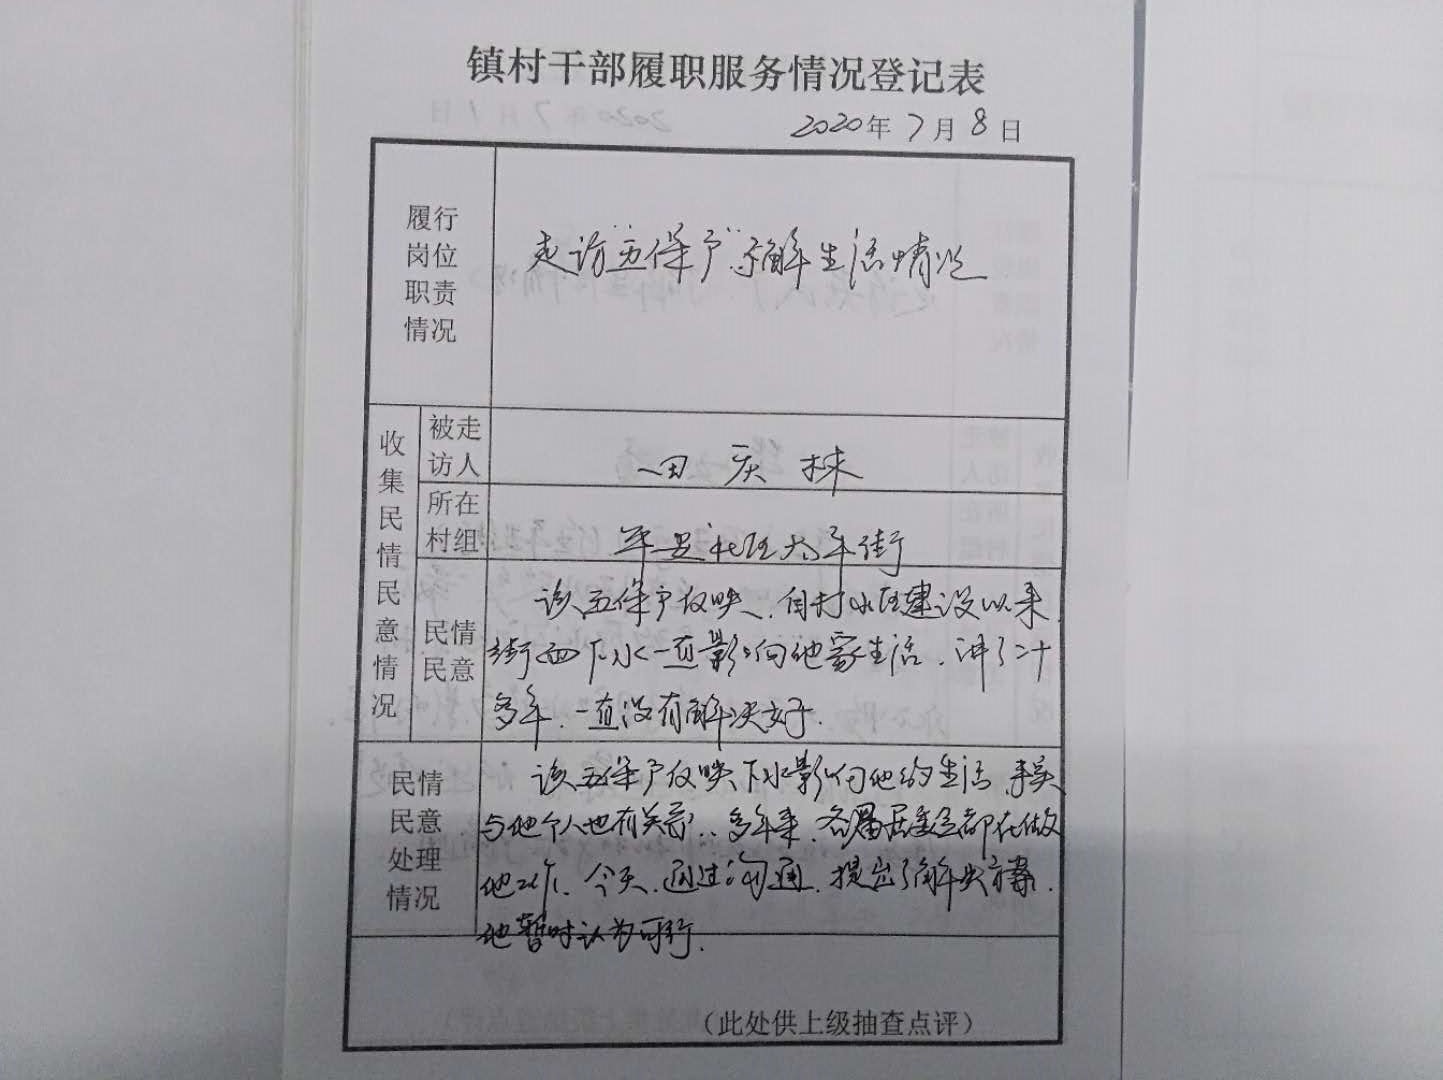 镇村干部履职服务情况登记表
2020年7月8日
履行
岗位
职责
情况
走访"五保户"了解生活情况
收集民情民意情况
被走
访人
田庆栋
所在
村组
社区太平街
民情
民意
该五保户反映,自村水区建设以来,
街面下水一直影响他家生活,讲了二十
多年,一直没有解决好.
民情
民意
处理
情况
该五保户反映、下水影响他的生活,
与他个人也有关系,多年来,各届居委会都在做
他工作、今天,通过沟通,提出了解决方案,
他暂时认为可行.
(此处供上级抽查点评)